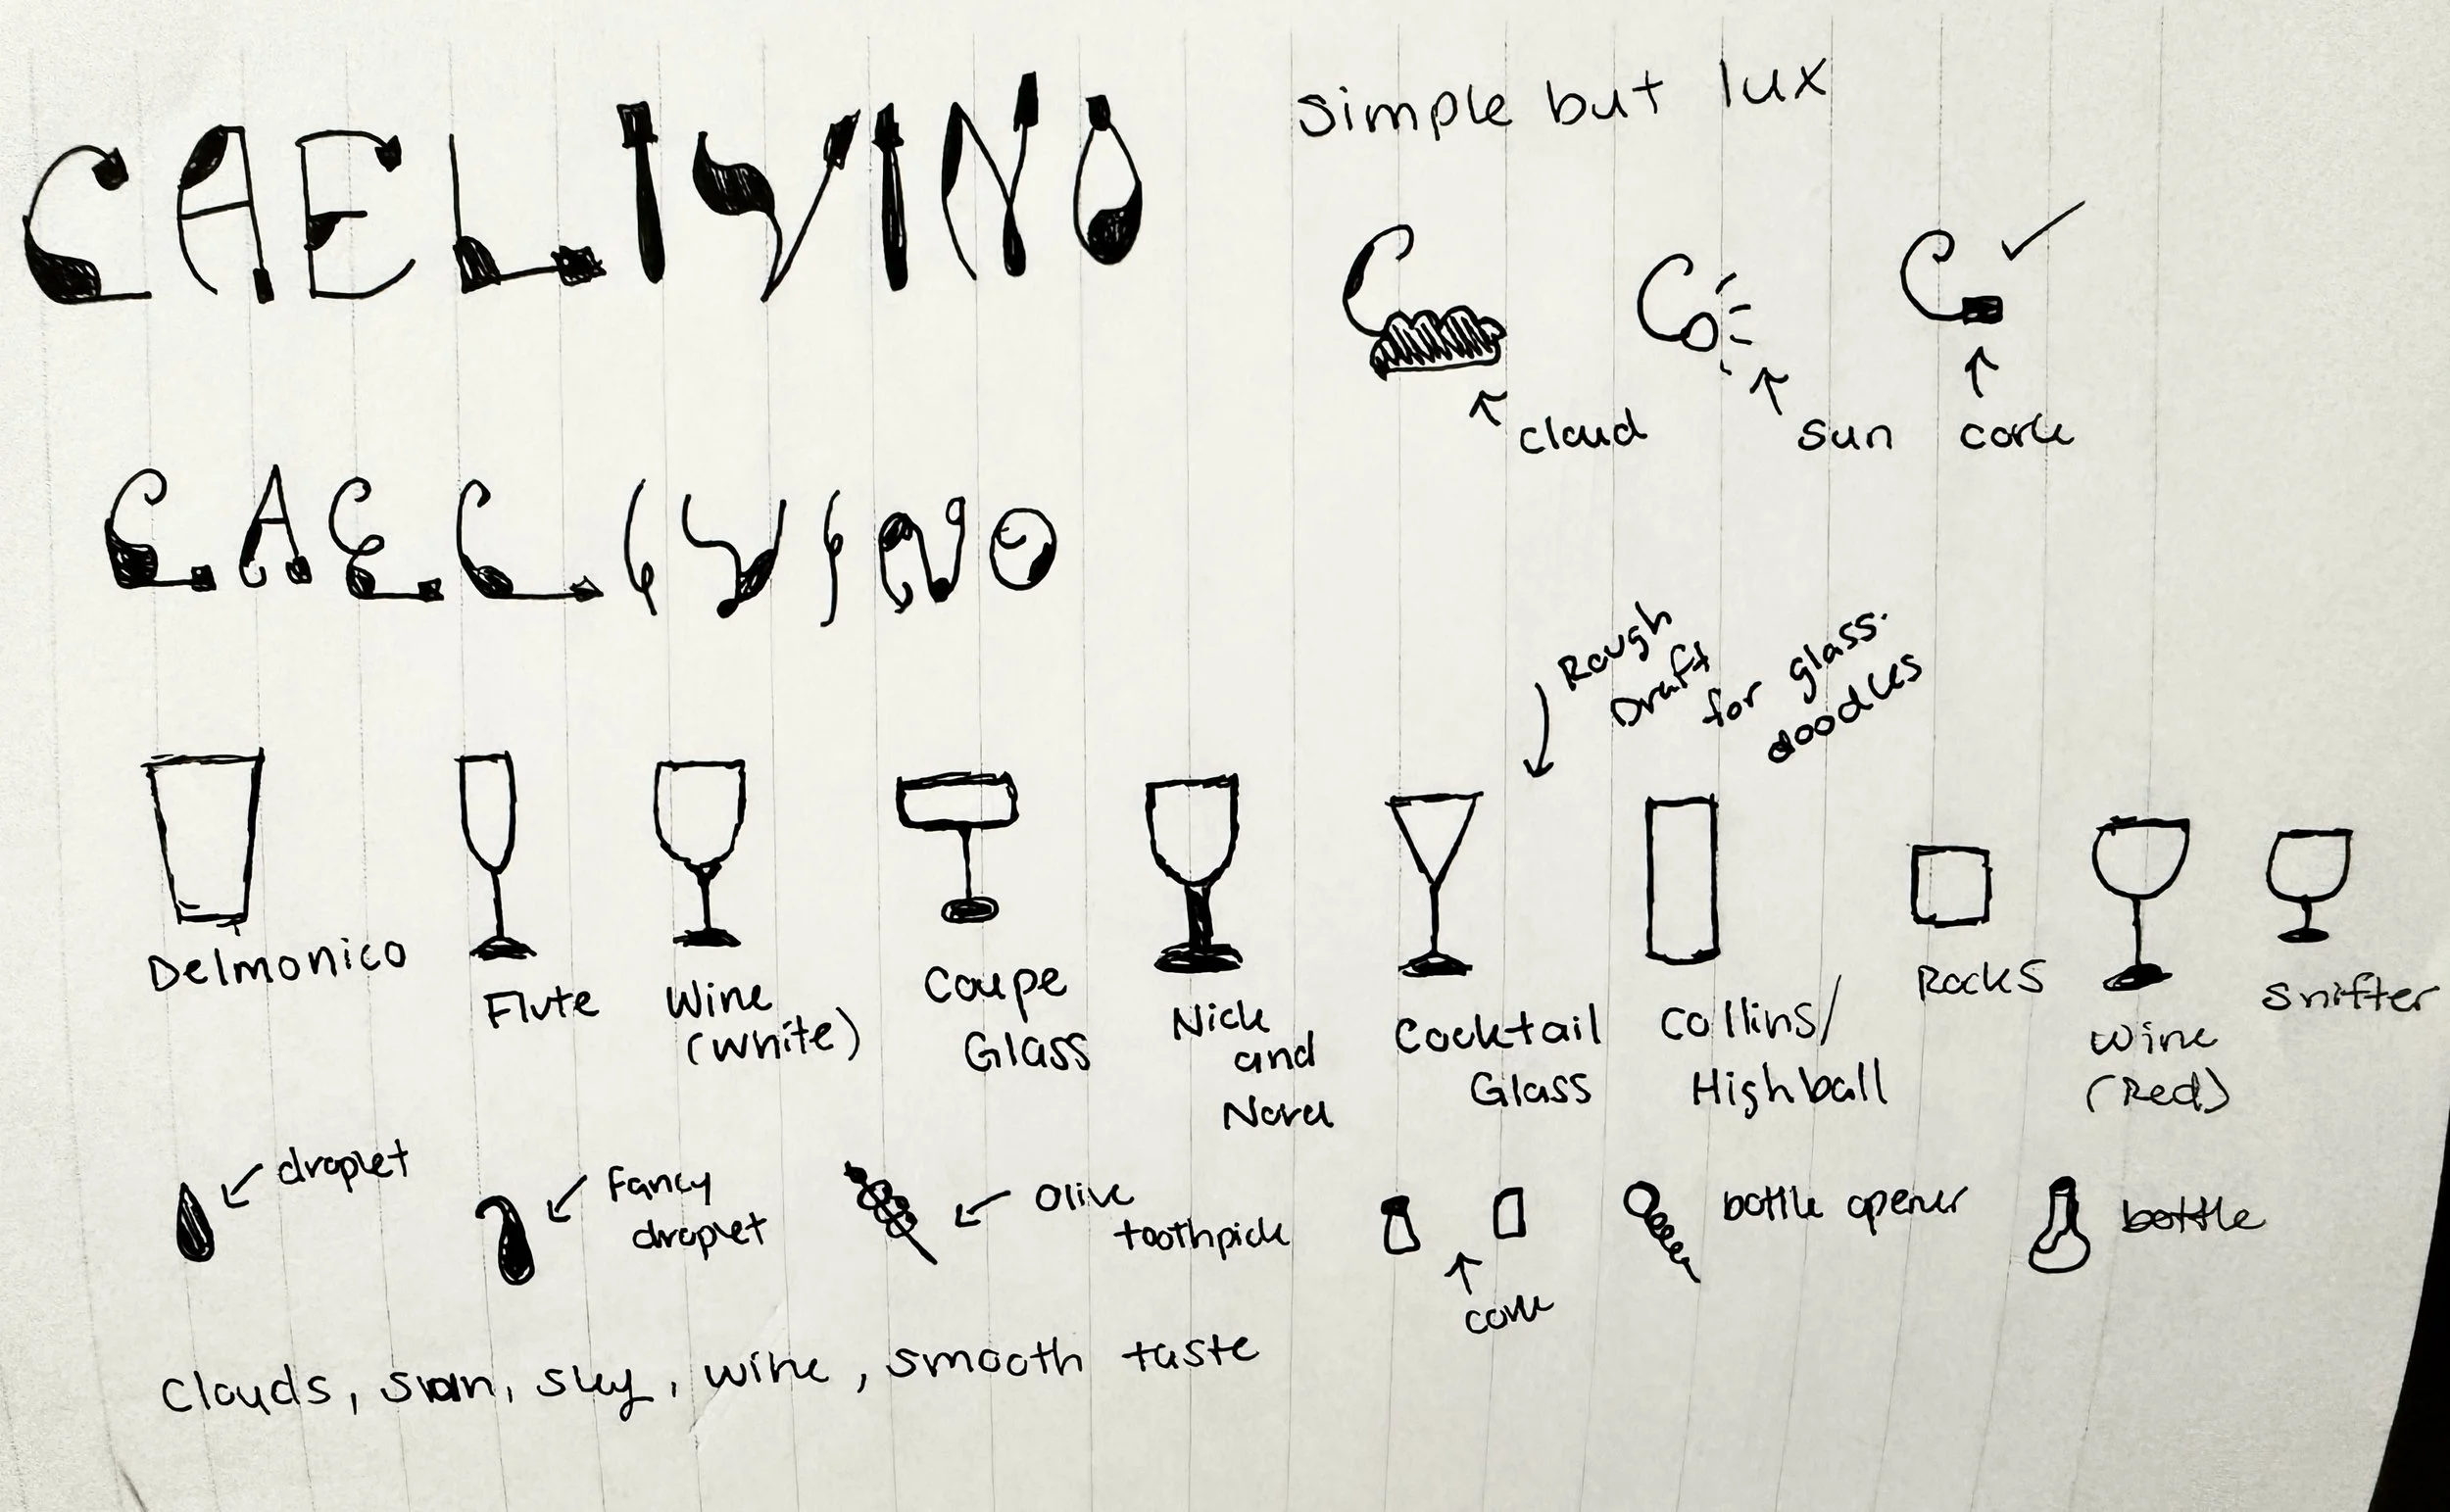 CAELIVINO
simple but lux
cloud
sun
cork
CAELIVINO
Rough
Draft
for glass
doodles
Delmonico
Flute
Wine
(white)
Coupe
Glass
Nick
and
Nora
Cocktail
Glass
Collins/
Highball
Rocks
Wine
(Red)
Snifter
droplet
Fancy
droplet
Olive
toothpick
cork
bottle opener
bottle
Clouds, sun, sky, wine, smooth taste